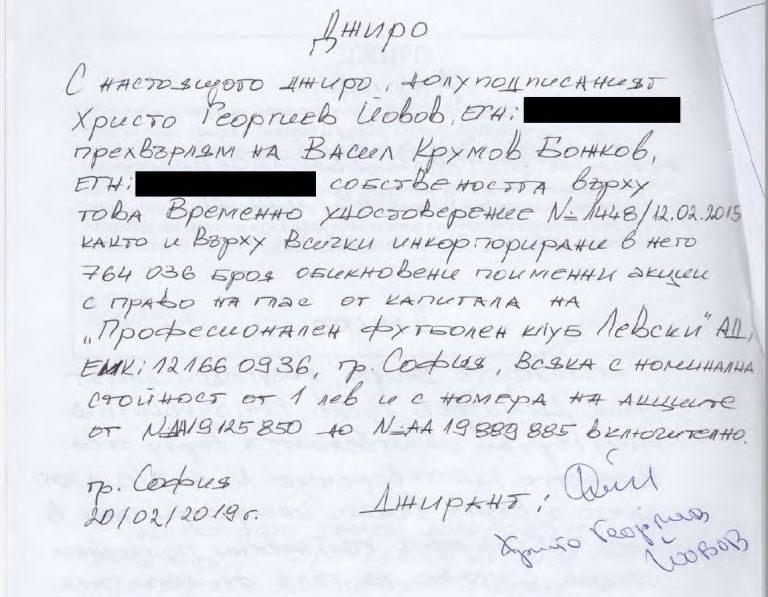 Джиро
С настоящото джиро, долуподписаният
Христо Георгиев Йовов, ЕГН:
прехвърлям на Васил Крумов Божков,
ЕГН: собствеността върху
това Временно удостоверение №1448/12.02.2015
както и върху всички инкорпорирани в него
764 036 броя обикновени поименни акции
с право на глас от капитала на
„Професионален футболен клуб Левски" АД,
ЕИК: 121660936, гр. София, всяка с номинална
стойност от 1 лев и с номера на акциите
от №АА19125850 до №АА19889885 включително.
гр. София
20/02/2019г.
Джирант:
Христо Георгиев
Йовов